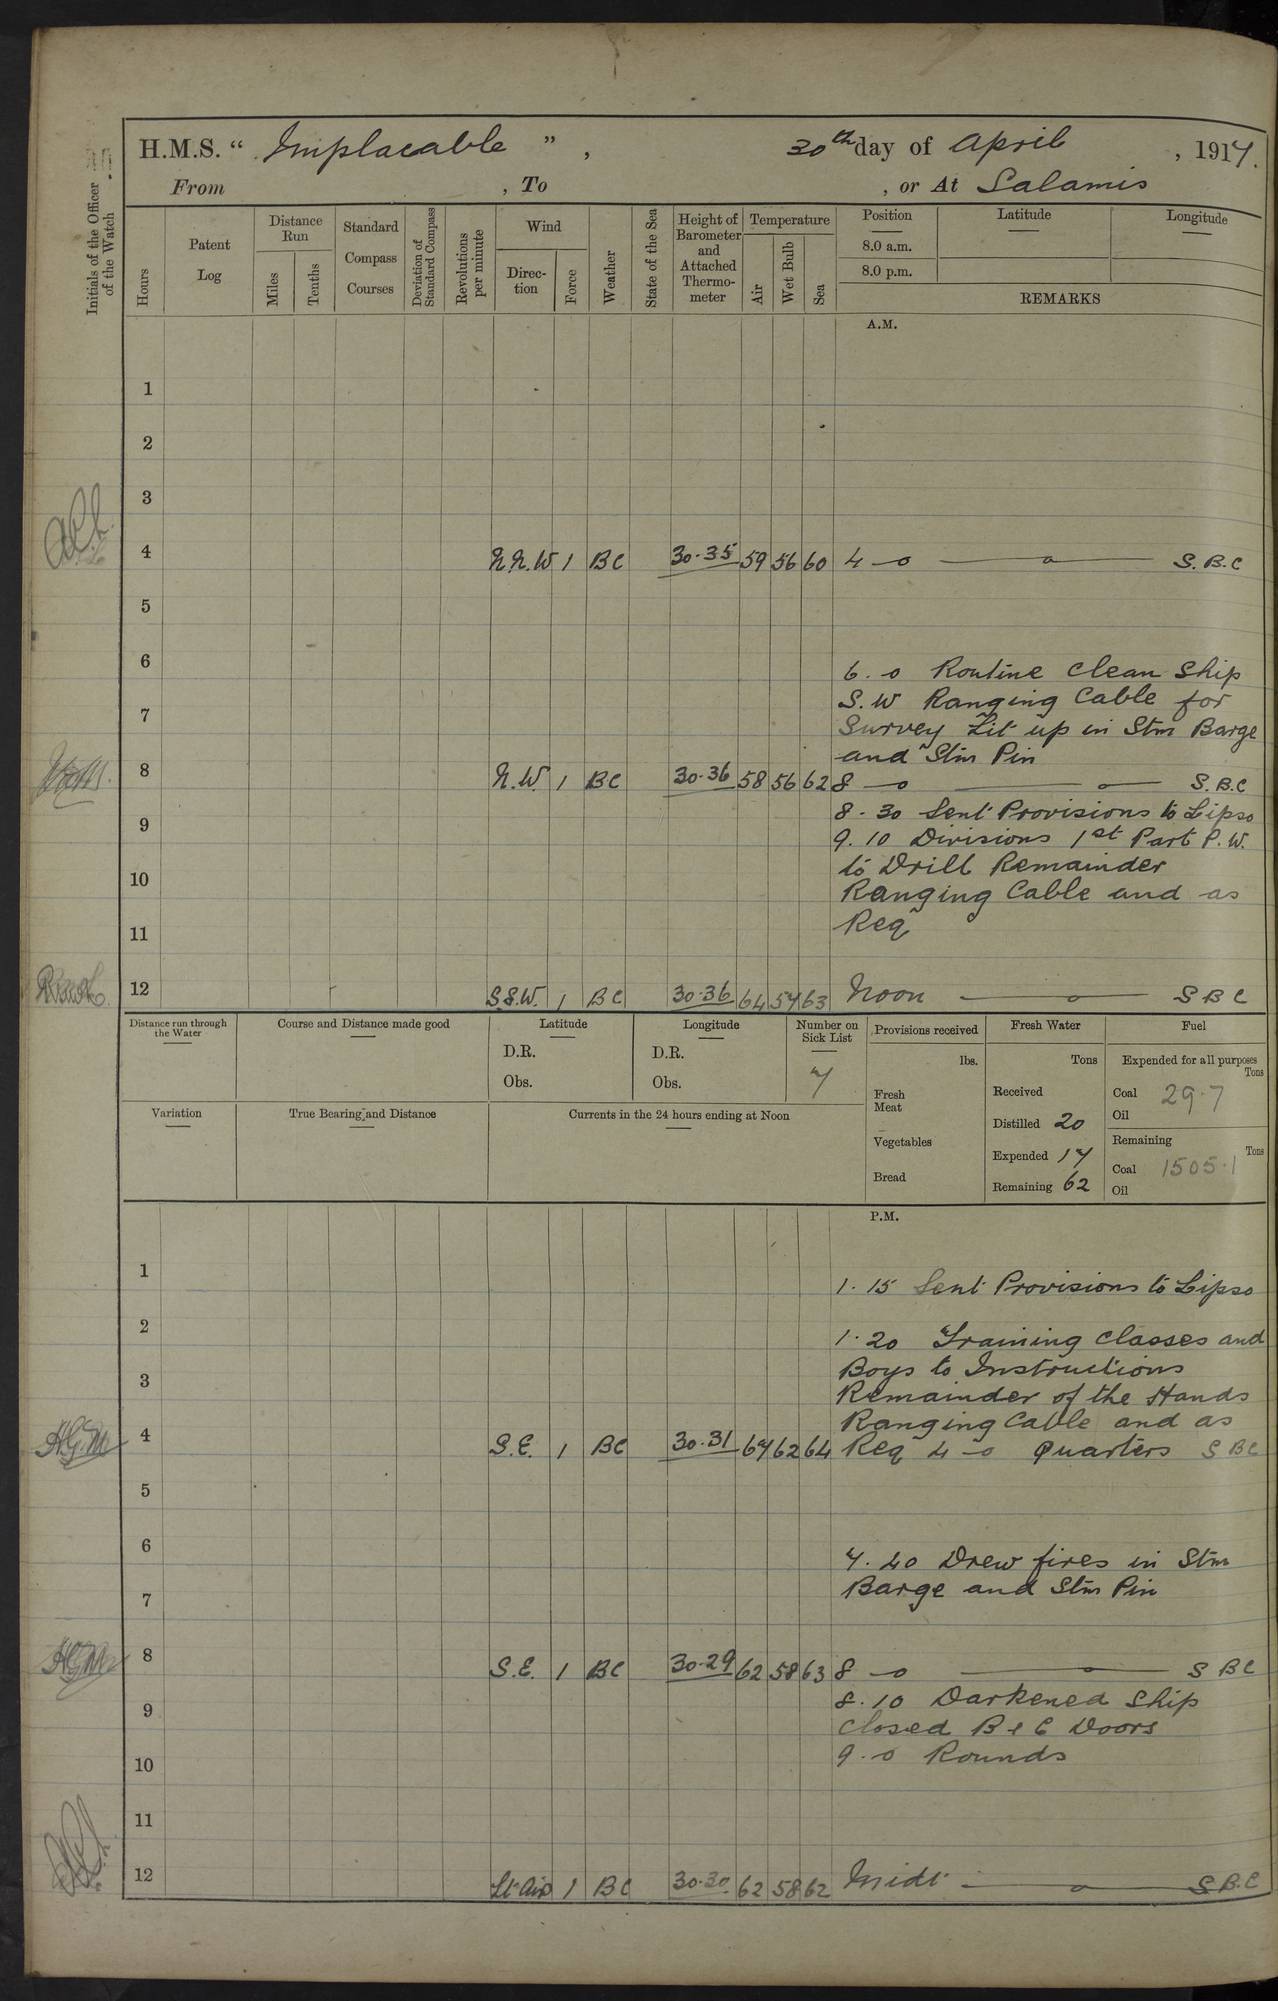 H.M.S. “ Implacable ” , 30th day of April , 1917.
From , To , or At Salamis
Initials of the Officer of the Watch
Hours
Patent Log
Distance Run
Miles
Tenths
Standard Compass Courses
Deviation of Standard Compass
Revolutions per minute
Wind
Direc-tion
Force
Weather
State of the Sea
Height of Barometer and Attached Thermo-meter
Temperature
Air
Wet Bulb
Sea
Position Latitude Longitude
8.0 a.m.
8.0 p.m.
REMARKS
A.M.
1
2
3
4 N.N.W 1 BC 30.35 59 56 60 4 - 0 S.B.C
5
6 6. 0 Routine Clean Ship
S.W Ranging Cable for
7
Survey Lit up in Stm Barge
and Stm Pin
8 N.W. 1 BC 30.36 58 56 62 8 - 0 S.B.C
8 - 30 Sent Provisions to Lipso
9 9. 10 Divisions 1st Part P.W.
to Drill Remainder
10 Ranging Cable and as
11 Req
12 S.S.W. 1 BC 30.36 64 57 63 Noon S B C
Distance run through the Water
Course and Distance made good
Latitude
D.R.
Obs.
Longitude
D.R.
Obs.
Number on Sick List
7
Provisions received
lbs.
Fresh Meat
Vegetables
Bread
Fresh Water
Tons
Received
Distilled 20
Expended 17
Remaining 62
Fuel
Expended for all purposes
Tons
Coal 29.7
Oil
Remaining
Tons
Coal 1505.1
Oil
Variation
True Bearing and Distance
Currents in the 24 hours ending at Noon
P.M.
1
1. 15 Sent Provisions to Lipso
2
1. 20 Training Classes and
3 Boys to Instructions
Remainder of the Hands
Ranging Cable and as
4 S.E. 1 BC 30.31 67 62 64 Req 4 - 0 Quarters S BC
5
6
7. 40 Drew fires in Stm
7 Barge and Stm Pin
8 S.E. 1 BC 30.29 62 58 63 8 - 0 S BC
8. 10 Darkened Ship
9 Closed B & C Doors
9. 0 Rounds
10
11
12 Lt Airs 1 BC 30.30 62 58 62 Midt S.B.C